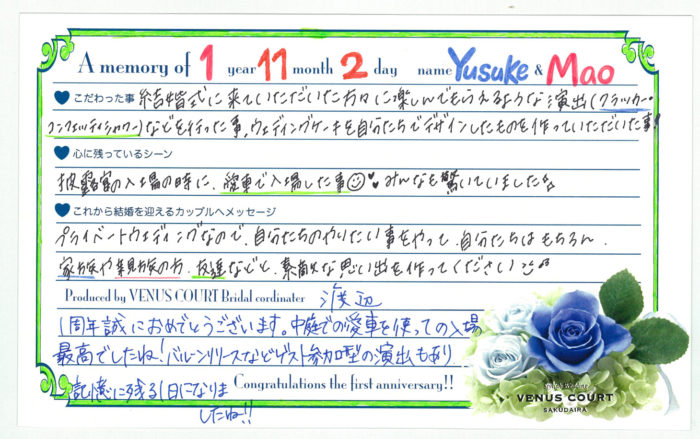 A memory of 1 year 11 month 2 day name Yusuke & Mao
こだわった事 結婚式に来ていただいた方々に楽しんでもらえるような演出(クラッカー・
コンフェッティシャワー)などを行った事。ウェディングケーキを自分たちでデザインしたものを作っていただいた事!
心に残っているシーン
披露宴の入場の時に、愛車で入場した事 みんなも驚いていました
これから結婚を迎えるカップルへメッセージ
プライベートウェディングなので、自分たちのやりたい事をやって、自分たちはもちろん、
家族や親族の方、友達などと、素敵な思い出を作ってください
Produced by VENUS COURT Bridal cordinater 渡辺
1周年誠におめでとうございます。中庭での愛車を使っての入場
最高でしたね!バルーンリリースなどゲスト参加型の演出もあり
記憶に残る1日になりま
Congratulations the first anniversary!!
したね!!
VENUS COURT
SAKUDAIRA